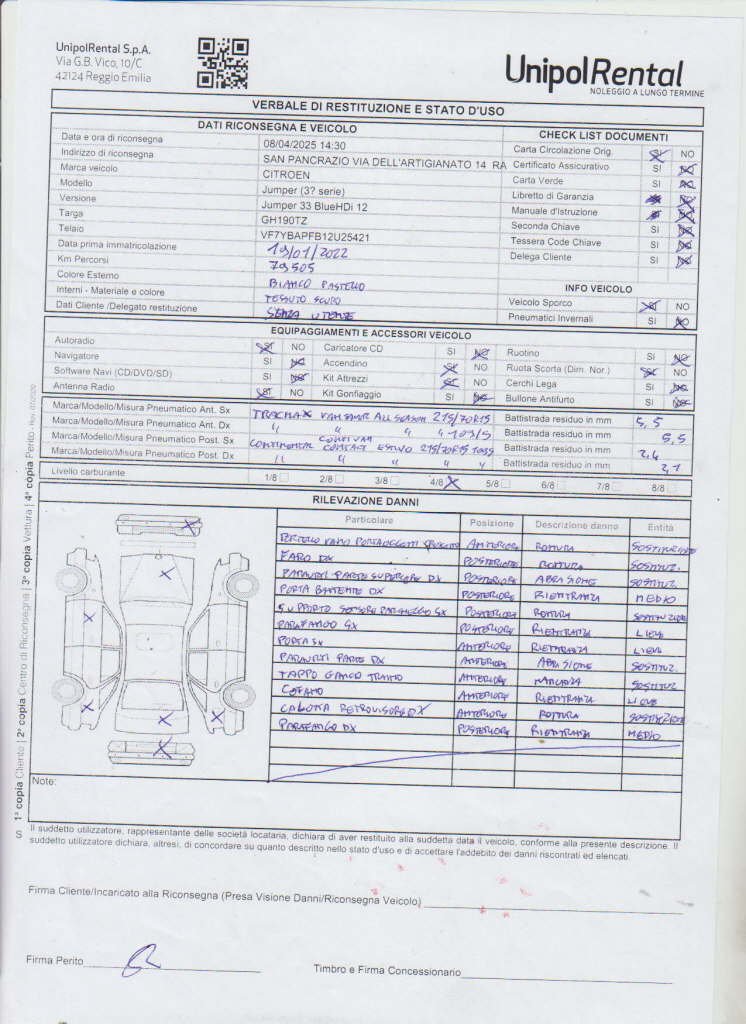 UnipolRental S.p.A.
Via G.B. Vico, 10/C
42124 Reggio Emilia
UnipolRental
NOLEGGIO A LUNGO TERMINE
VERBALE DI RESTITUZIONE E STATO D'USO
DATI RICONSEGNA E VEICOLO
Data e ora di riconsegna 08/04/2025 14:30
Indirizzo di riconsegna SAN PANCRAZIO VIA DELL'ARTIGIANATO 14 RA
Marca veicolo CITROEN
Modello Jumper (3? serie)
Versione Jumper 33 BlueHDi 12
Targa GH190TZ
Telaio VF7YBAPFB12U25421
Data prima immatricolazione 19/01/2022
Km Percorsi 79505
Colore Esterno BIANCO PASTELLO
Interni - Materiale e colore TESSUTO SCURO
Dati Cliente /Delegato restituzione SENZA UTENTE
CHECK LIST DOCUMENTI
Carta Circolazione Orig. SI NO
Certificato Assicurativo SI NO
Carta Verde SI NO
Libretto di Garanzia SI NO
Manuale d'Istruzione SI NO
Seconda Chiave SI NO
Tessera Code Chiave SI NO
Delega Cliente SI NO
INFO VEICOLO
Veicolo Sporco SI NO
Pneumatici Invernali SI NO
EQUIPAGGIAMENTI E ACCESSORI VEICOLO
Autoradio SI NO Caricatore CD SI NO Ruotino SI NO
Navigatore SI NO Accendino SI NO Ruota Scorta (Dim. Nor.) SI NO
Software Navi (CD/DVD/SD) SI NO Kit Attrezzi SI NO Cerchi Lega SI NO
Antenna Radio SI NO Kit Gonfiaggio SI NO Bullone Antifurto SI NO
Marca/Modello/Misura Pneumatico Ant. Sx TRACMAX VANSMART ALL SEASON 215/70R15 Battistrada residuo in mm 5,5
Marca/Modello/Misura Pneumatico Ant. Dx " " " " 109/S Battistrada residuo in mm 5,5
Marca/Modello/Misura Pneumatico Post. Sx CONTINENTAL CONTIVAN CONTACT ESTIVO 215/70R15 109S Battistrada residuo in mm 2,4
Marca/Modello/Misura Pneumatico Post. Dx " " " " Battistrada residuo in mm 2,1
Livello carburante 1/8 2/8 3/8 4/8 5/8 6/8 7/8 8/8
RILEVAZIONE DANNI
Particolare Posizione Descrizione danno Entità
VANO PORTAOGGETTI ANTERIORE ROTTURA SOSTITUZIONE
FARO DX POSTERIORE ROTTURA SOSTITUZ.
PARAURTI PARTE SUPERIORE DX POSTERIORE ABRASIONE SOSTITUZ.
PORTA BATTENTE DX POSTERIORE RIENTRANZA MEDIO
SUPPORTO SENSORE PARCHEGGIO SX POSTERIORE ROTTURA SOSTITUZIONE
PARAFANGO SX POSTERIORE RIENTRANZA LIEVE
PORTA SX ANTERIORE RIENTRANZA LIEVE
PARAURTI PARTE DX ANTERIORE ABRASIONE SOSTITUZ.
TAPPO GANCIO TRAINO ANTERIORE MANCANZA SOSTITUZ
COFANO ANTERIORE RIENTRANZA LIEVE
CALOTTA RETROVISORE DX ANTERIORE ROTTURA SOSTITUZIONE
PARAFANGO DX POSTERIORE RIENTRANZA MEDIO
Note:
Il suddetto utilizzatore, rappresentante delle società locataria, dichiara di aver restituito alla suddetta data il veicolo, conforme alla presente descrizione. Il
suddetto utilizzatore dichiara, altresì, di concordare su quanto descritto nello stato d'uso e di accettare l'addebito dei danni riscontrati ed elencati.
Firma Cliente/Incaricato alla Riconsegna (Presa Visione Danni/Riconsegna Veicolo)
Firma Perito
Timbro e Firma Concessionario
S 1ª copia Cliente | 2ª copia Centro di Riconsegna | 3ª copia Vettura | 4ª copia Perito